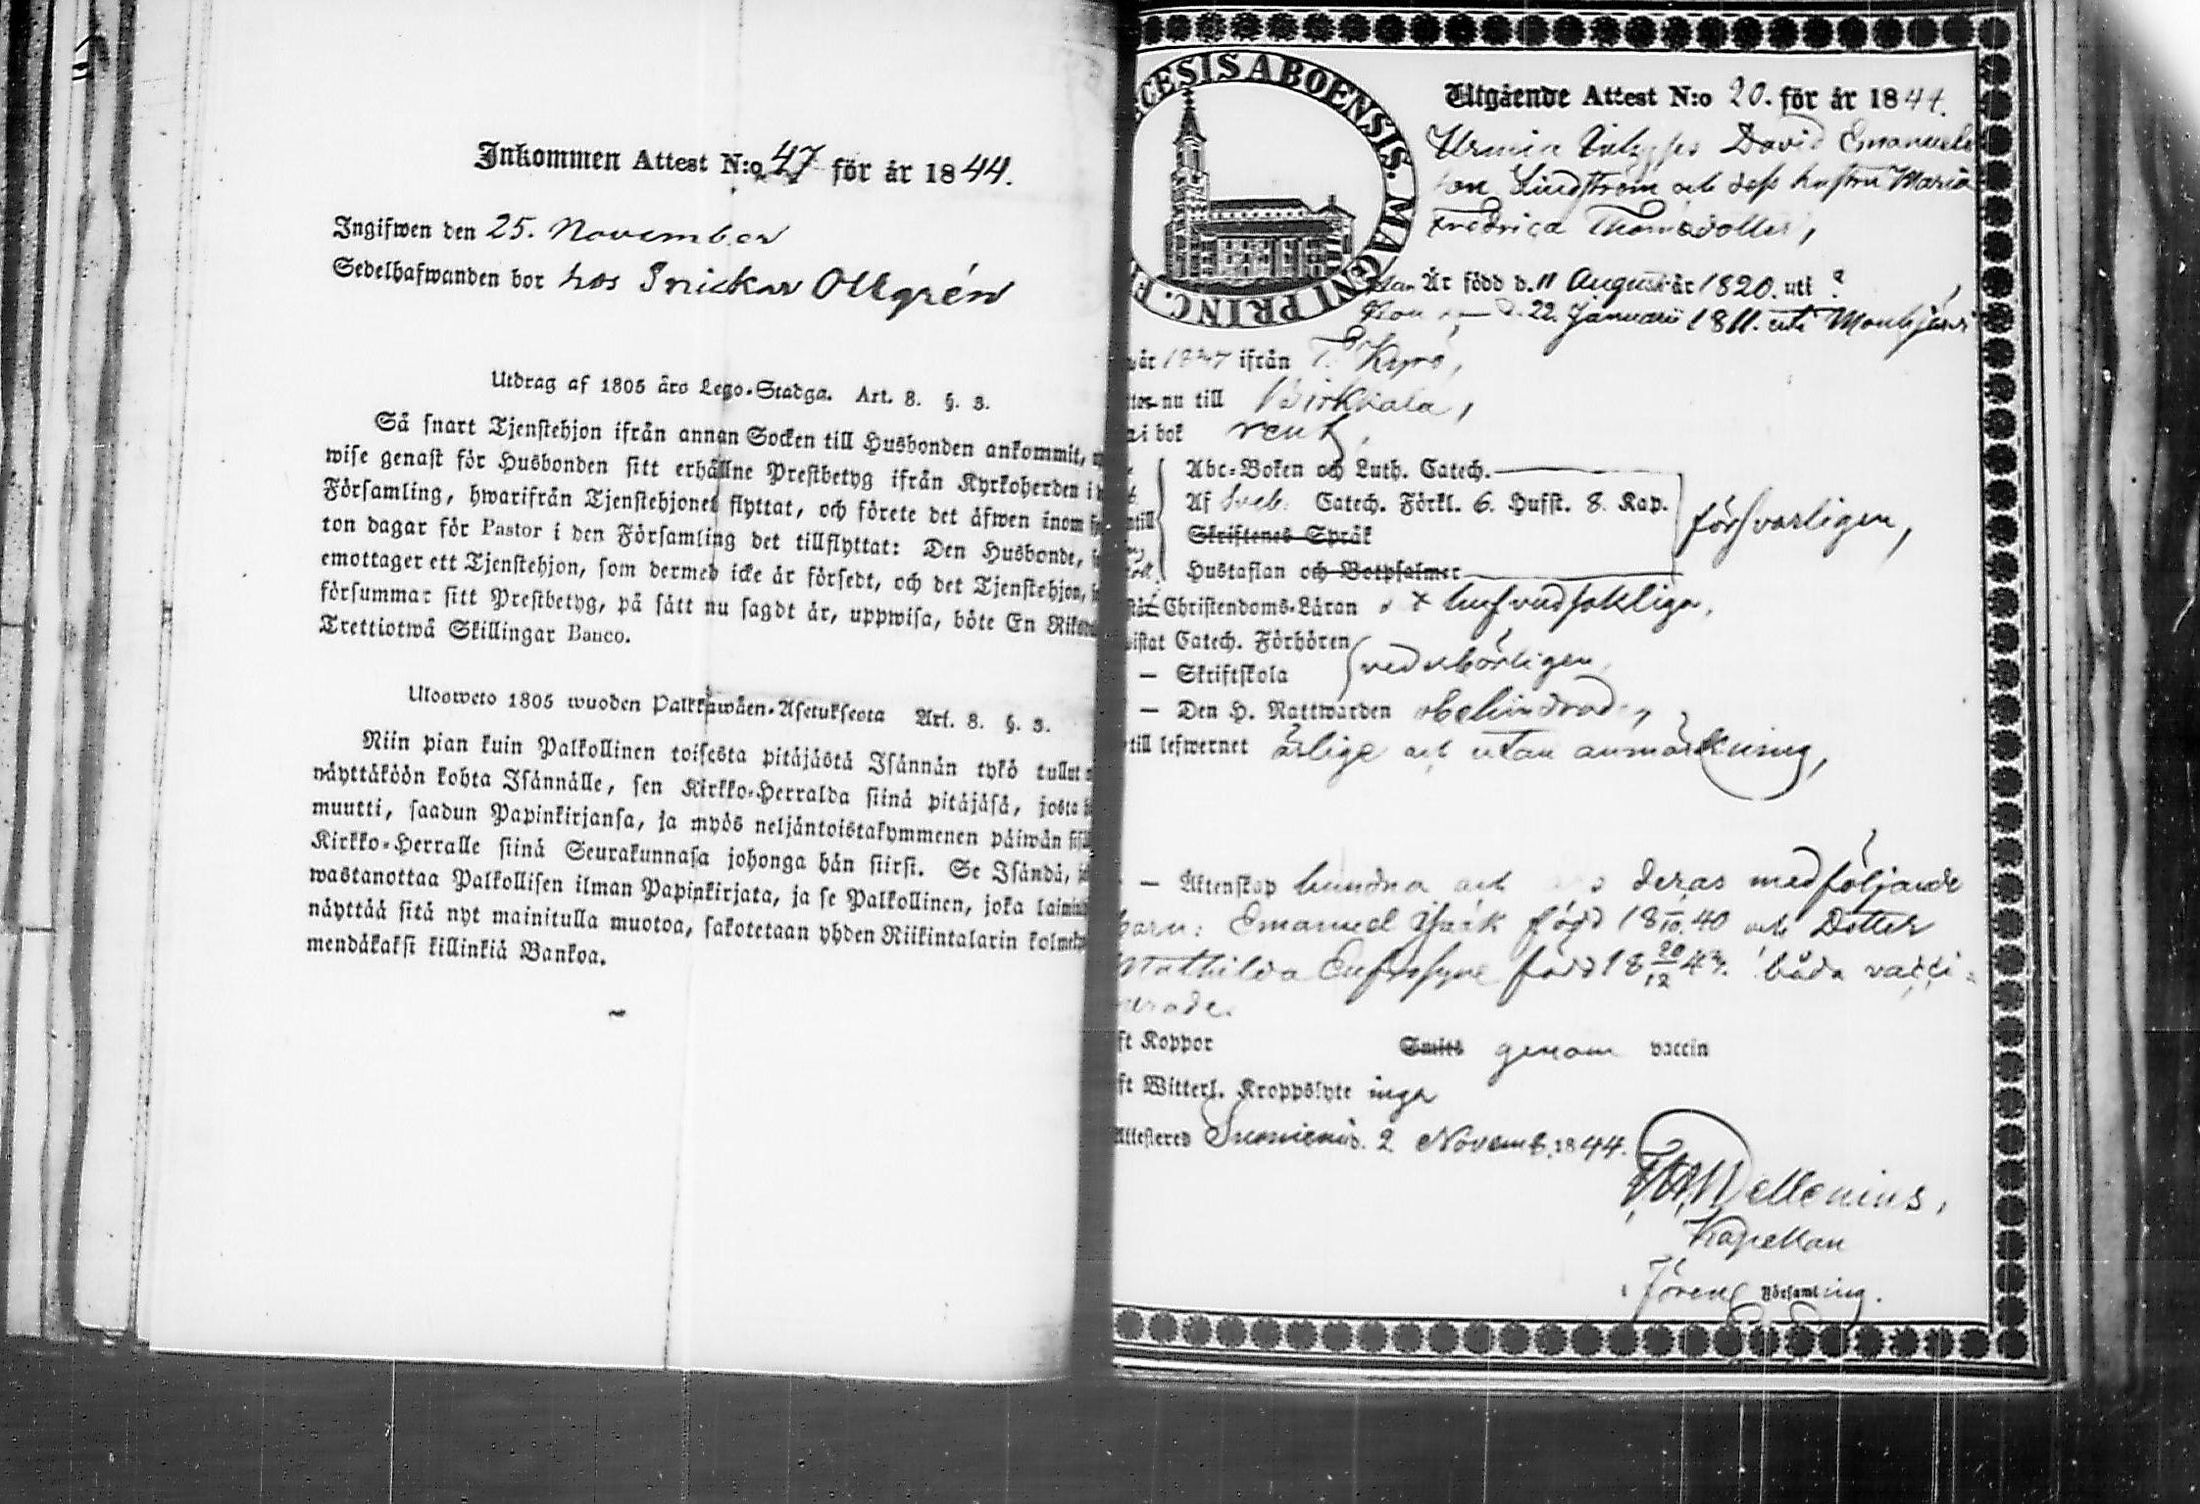 Inkommen Attest N:o 47 för år 1844.
Ingifwen den 25. November
Sedelhafwanden bor hos Snickar Ollgrén
Utdrag af 1805 års Lego-Stadga. Art. 8. §. 3.
Så snart Tjenstehjon ifrån annan Socken till Husbonden ankommit,
wise genast för Husbonden sitt erhållne Prestbetyg ifrån Kyrkoherden i
Församling, hwarifrån Tjenstehjonet flyttat, och förete det äfwen inom
ton dagar för Pastor i den Församling det tillflyttat: Den Husbonde,
emottager ett Tjenstehjon, som dermed icke är försedt, och det Tjenstehjon,
försummar sitt Prestbetyg, på sätt nu sagdt är, uppwisa, böte En
Trettiotwå Skillingar Banco.
Ulosweto 1805 wuoden Palkkawäen-Asetuksesta Art. 8. §. 3.
Niin pian kuin Palkollinen toisesta pitäjästä Isännän tykö tullut
näyttäköön kohta Isännälle, sen Kirkko-Herralda siinä pitäjäsä, josta
muutti, saadun Papinkirjansa, ja myös neljäntoistakymmenen päiwän
Kirkko-Herralle siinä Seurakunnasa johonga hän siirsi. Se Isändä,
wastanottaa Palkollisen ilman Papinkirjata, ja se Palkollinen, joka
näyttää sitä nyt mainitulla muotoa, sakotetaan yhden Riikintalarin
mendäkaksi killinkiä Bankoa.
CESIS ABOENSIS. MAGNI PRINC. F
Utgående Attest N:o 20. för år 1844.
David Emanuels
son Lindström och dess hustru Maria
Fredrica Thomædotter,
Han Är född d. 11 Augusti år 1820. uti ?
Hon d. 22. Januarii 1811. uti Mouhijärvi
år ifrån T. Kyro,
nu till Birkkala,
i bok rent,
Abc-Boken och Luth. Catech.
Af Sveb. Catech. Förkl. 6. Hufst. 8. Kap.
försvarligen,
Skriftenes Språk
Hustaflan och Botpsalmer
Christendoms-Läran hufvudsakliga,
Catech. Förhören
vederbörligen,
— Skriftskola
— Den H. Nattwarden obehindrade,
till lefwernet ärlige och utan anmärkning,
— Äktenskap bundna och deras medföljande
barn: Emanuel Isaak född 18 40 och Dotter
Mathilda Eufrosyne född 18 20/12 43. båda vacci-
nerade.
ft Koppor Smitt genom vaccin
ft Witterl. Kroppslyte inga
Attesteres Suoniemi d. 2 Novemb. 1844.
Mellenius,
Kapellan
Församling.